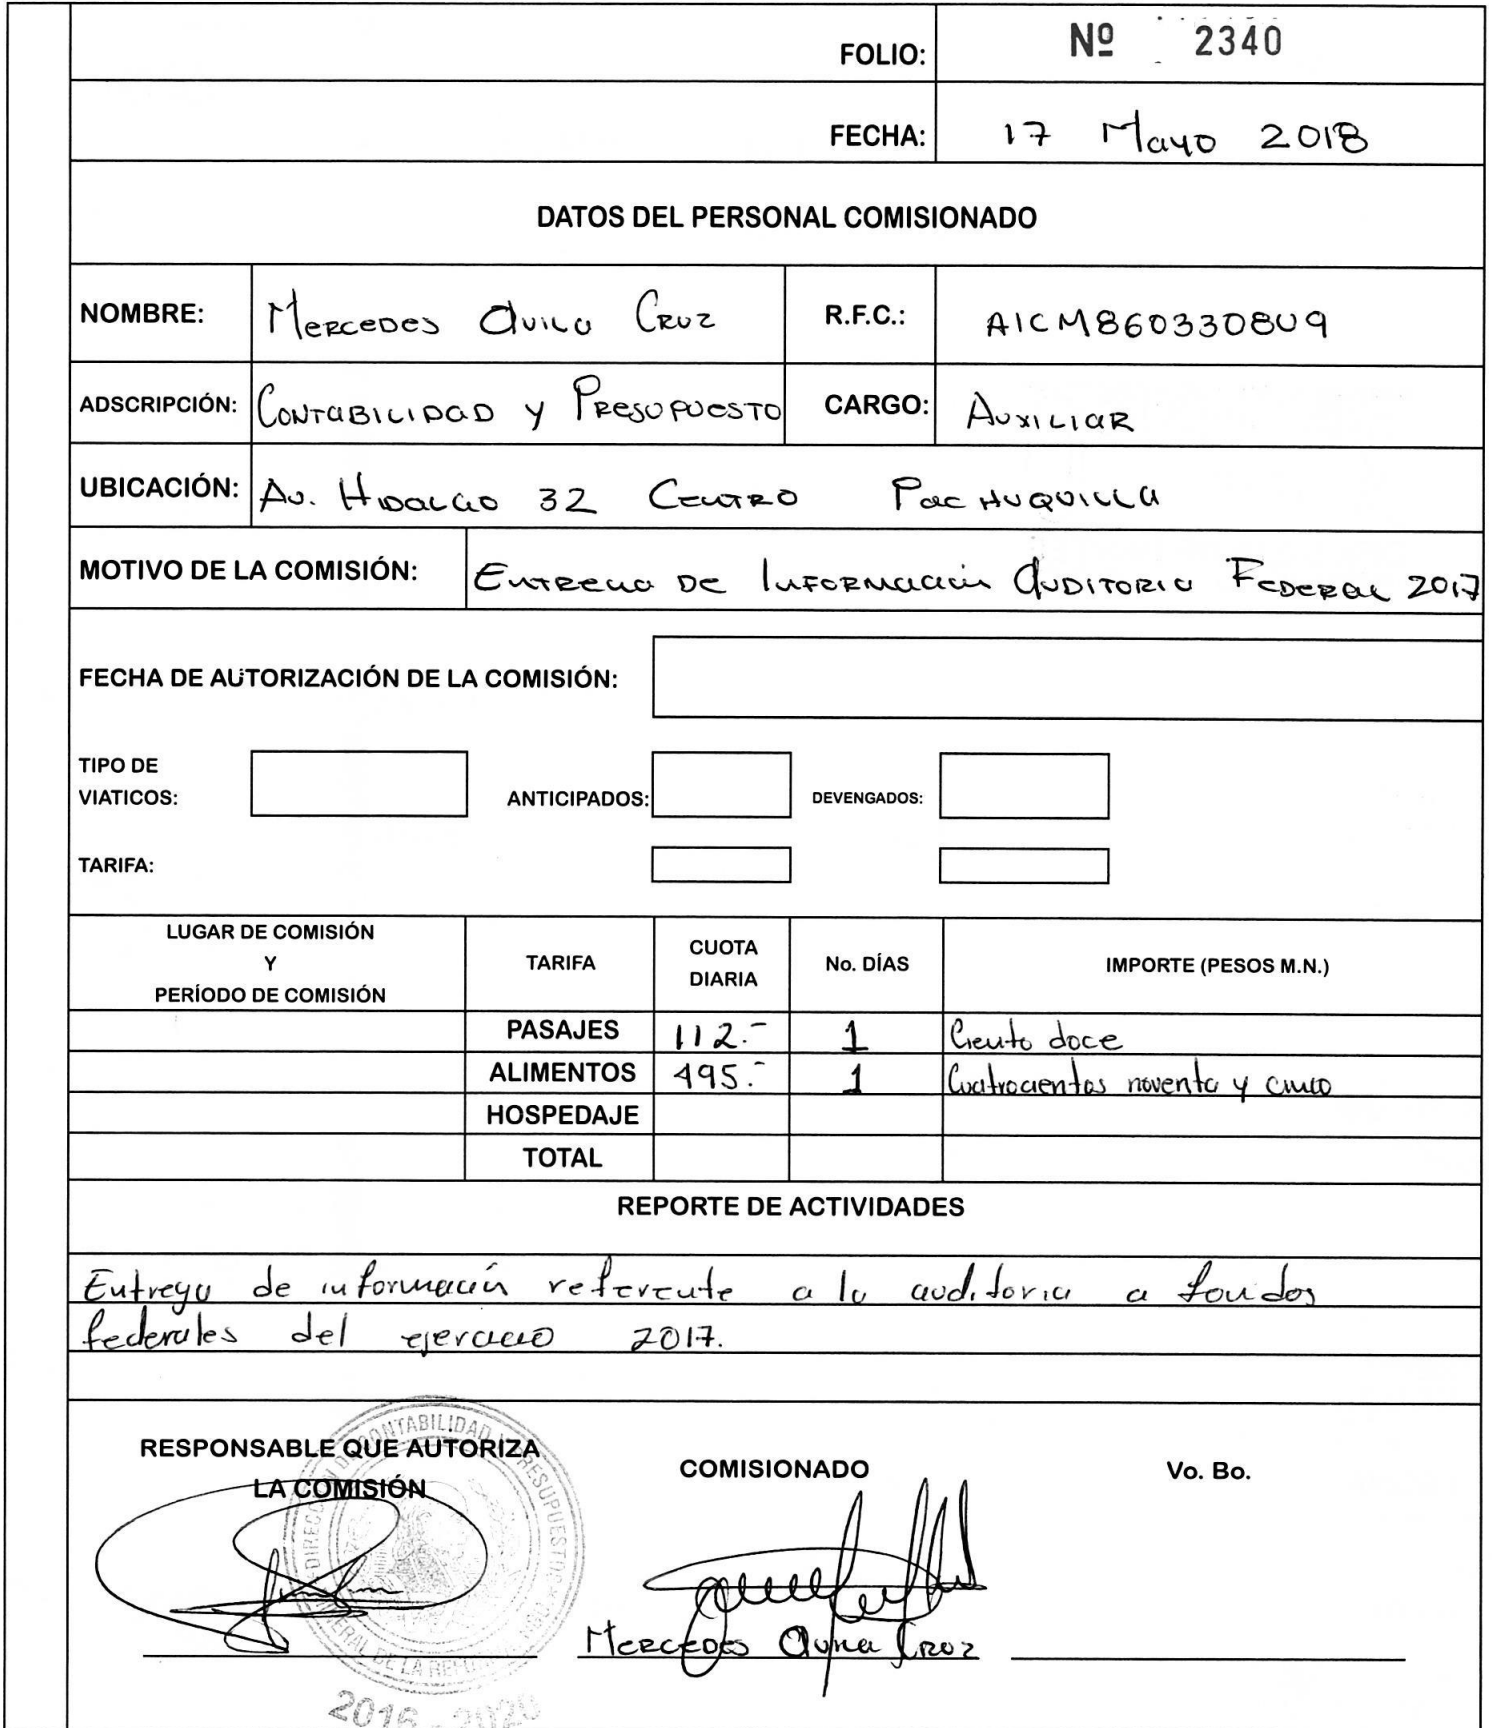 FOLIO: Nº 2340
FECHA: 17 Mayo 2018
DATOS DEL PERSONAL COMISIONADO
NOMBRE: Mercedes Avila Cruz R.F.C.: AICM8603308U9
ADSCRIPCIÓN: Contabilidad y Presupuesto CARGO: Auxiliar
UBICACIÓN: Av. Hidalgo 32 Centro Pachuquilla
MOTIVO DE LA COMISIÓN: Entrega de Información Auditoria Federal 2017
FECHA DE AUTORIZACIÓN DE LA COMISIÓN:
TIPO DE
VIATICOS: ANTICIPADOS: DEVENGADOS:
TARIFA:
LUGAR DE COMISIÓN
Y
PERÍODO DE COMISIÓN
TARIFA
CUOTA
DIARIA
No. DÍAS
IMPORTE (PESOS M.N.)
PASAJES 112.- 1 Ciento doce
ALIMENTOS 495.- 1 Cuatrocientos noventa y cinco
HOSPEDAJE
TOTAL
REPORTE DE ACTIVIDADES
Entrega de información referente a la auditoria a fondos
federales del ejercicio 2017.
RESPONSABLE QUE AUTORIZA
LA COMISIÓN
COMISIONADO
Vo. Bo.
Mercedes Avila Cruz
CONTABILIDAD Y PRESUPUESTO
2016 - 2020